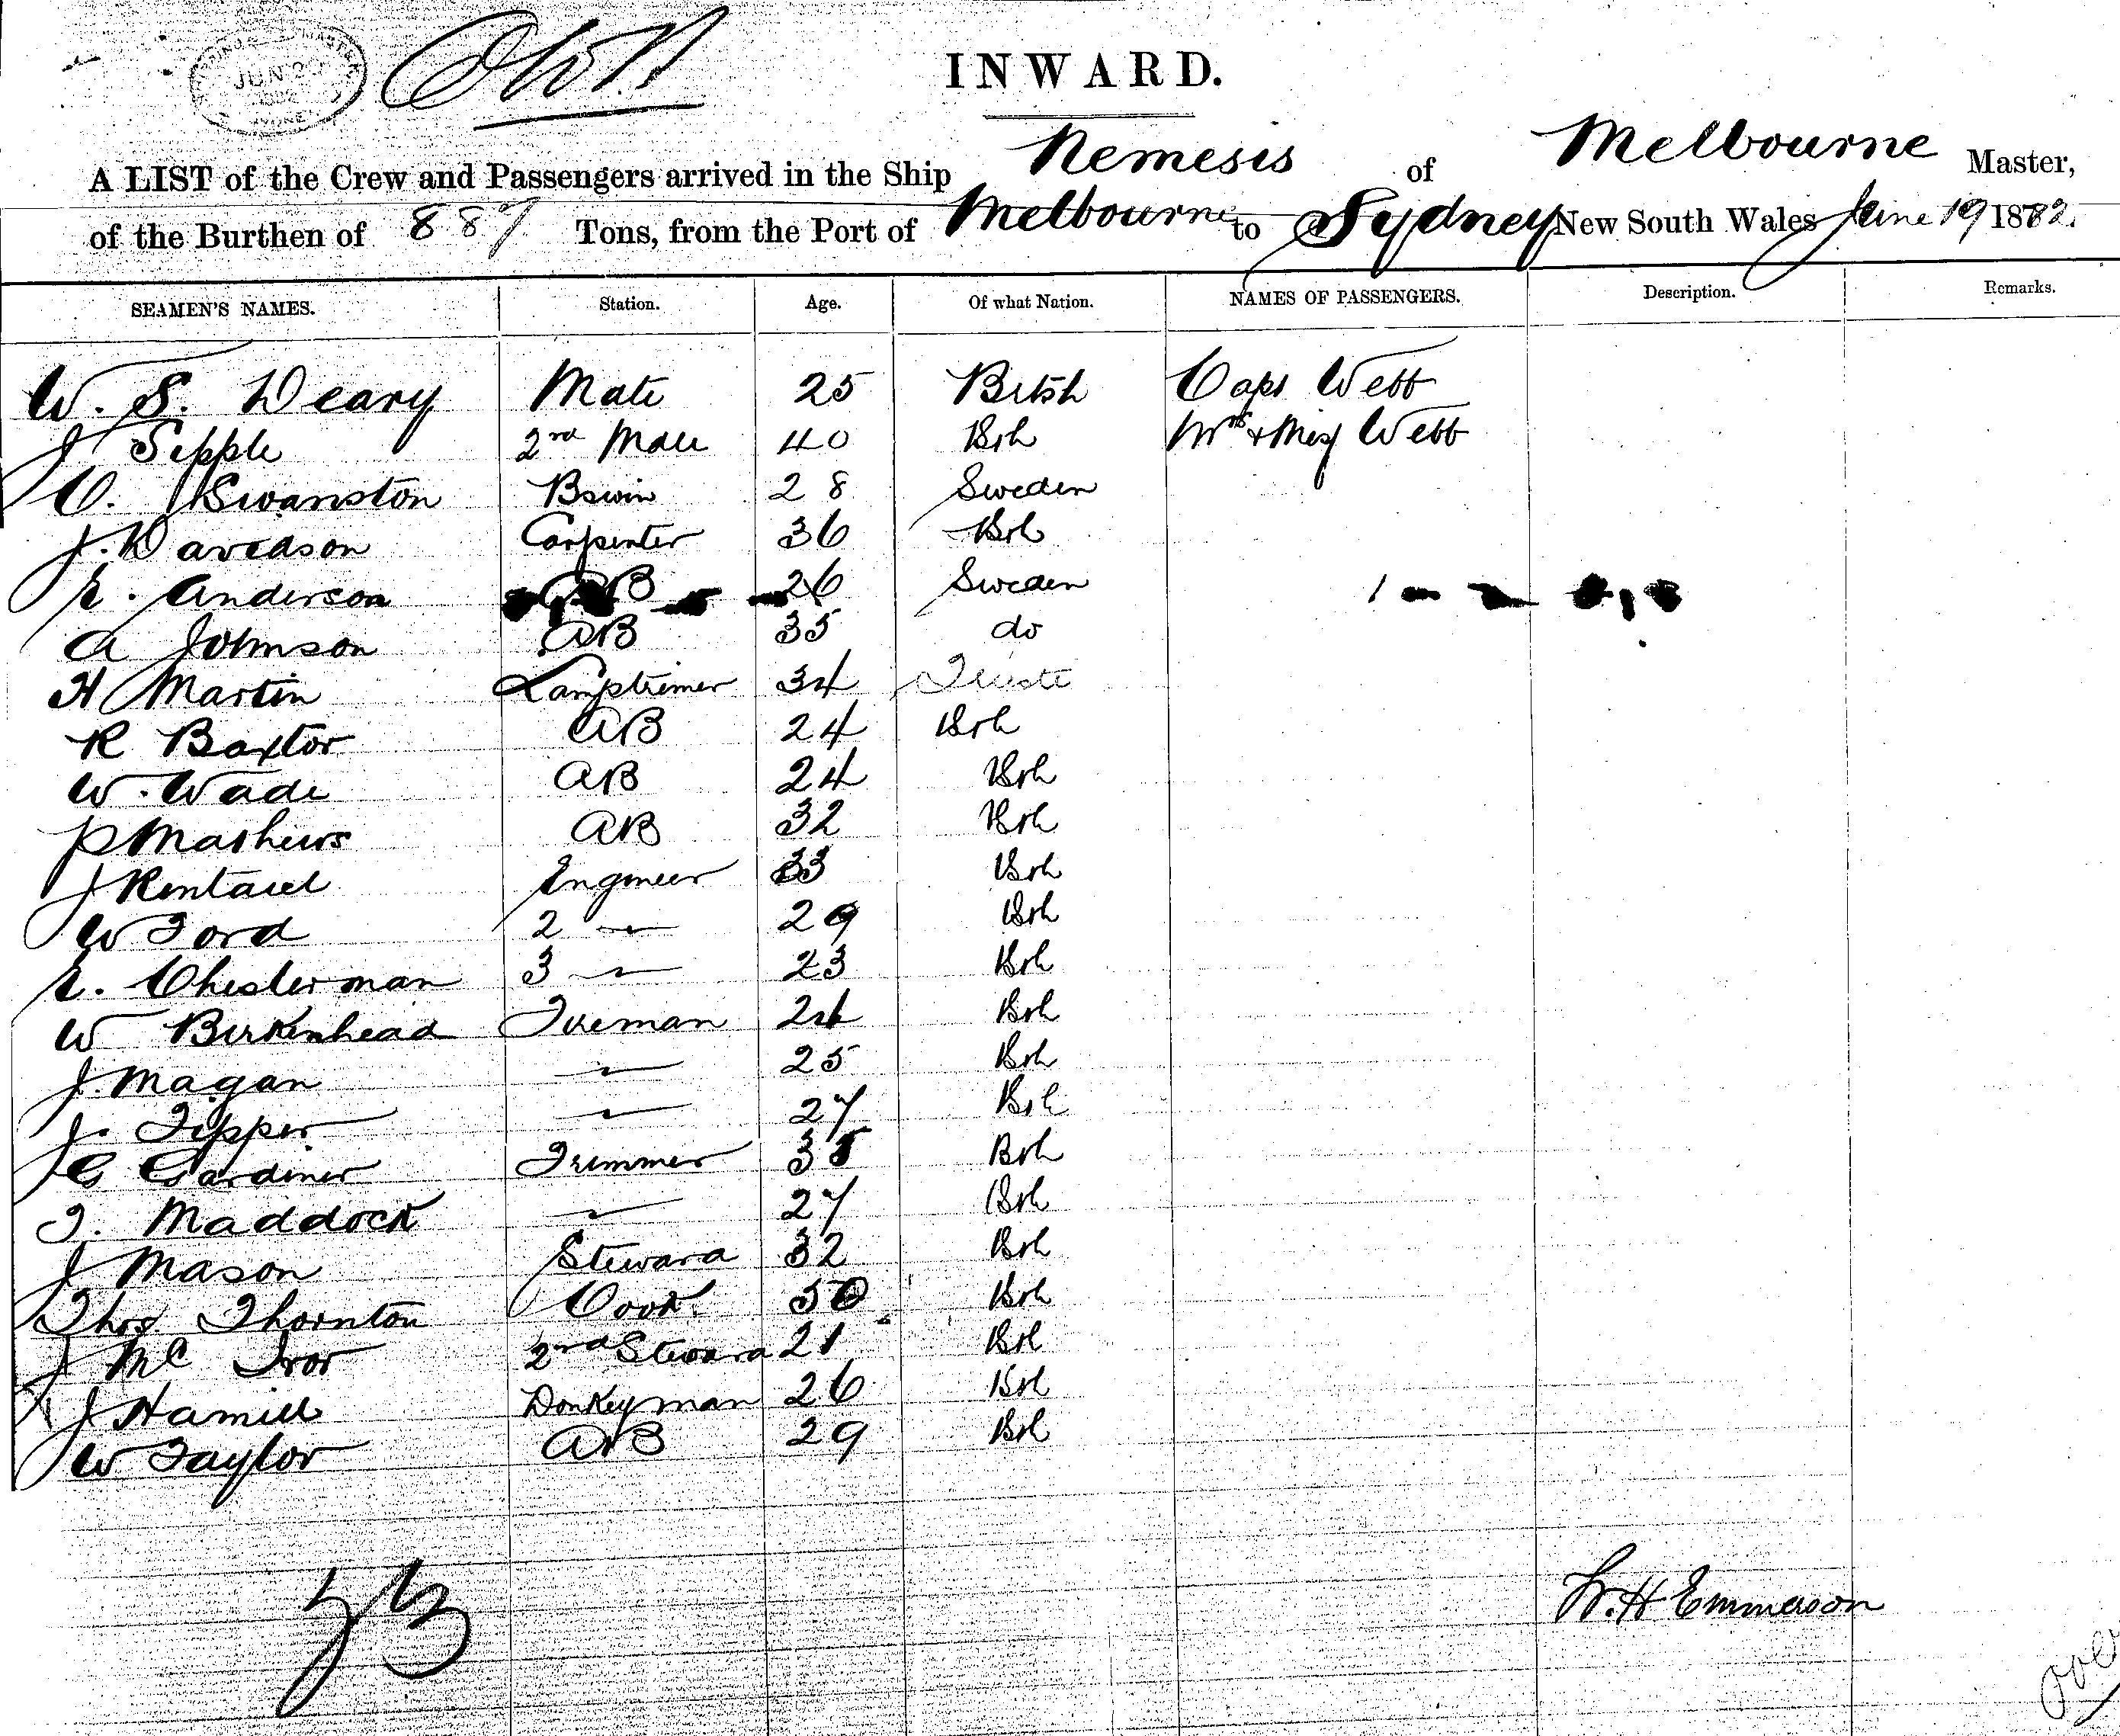 JUN 20
SYDNEY
INWARD.
A LIST of the Crew and Passengers arrived in the Ship Nemesis of Melbourne Master,
of the Burthen of 887 Tons, from the Port of Melbourne to Sydney New South Wales June 19 1882.
SEAMEN'S NAMES. Station. Age. Of what Nation. NAMES OF PASSENGERS. Description. Remarks.
W. S. Deary Mate 25 Bitsh Capt Webb
J Sepple 2nd Mate 40 Brh Mrs & Miss Webb
O. Swanston Bswin 28 Sweden
J. Davedson Carpenter 36 Brh
E. Anderson AB 26 Sweden
A Johnson AB 35 do
H Martin Lamptrimer 34 Trieste
R Baxtor AB 24 Brh
W. Wade AB 24 Brh
P Mathews AB 32 Brh
J Rentaul Engineer 33 Brh
W Ford 2 " 29 Brh
E. Chesterman 3 " 23 Brh
W Birkenhead Fireman 24 Brh
J. Magan " 25 Brh
J. Tipper " 27 Brh
G Gardiner Trimmer 35 Brh
T. Maddock " 27 Brh
J Mason Steward 32 Brh
Thos Thornton Cook. 50 Brh
J Mc Ivor 2nd Steward 21 Brh
J Hamill Donkeyman 26 Brh
W Taylor AB 29 Brh
23
W. H Emmerson
over